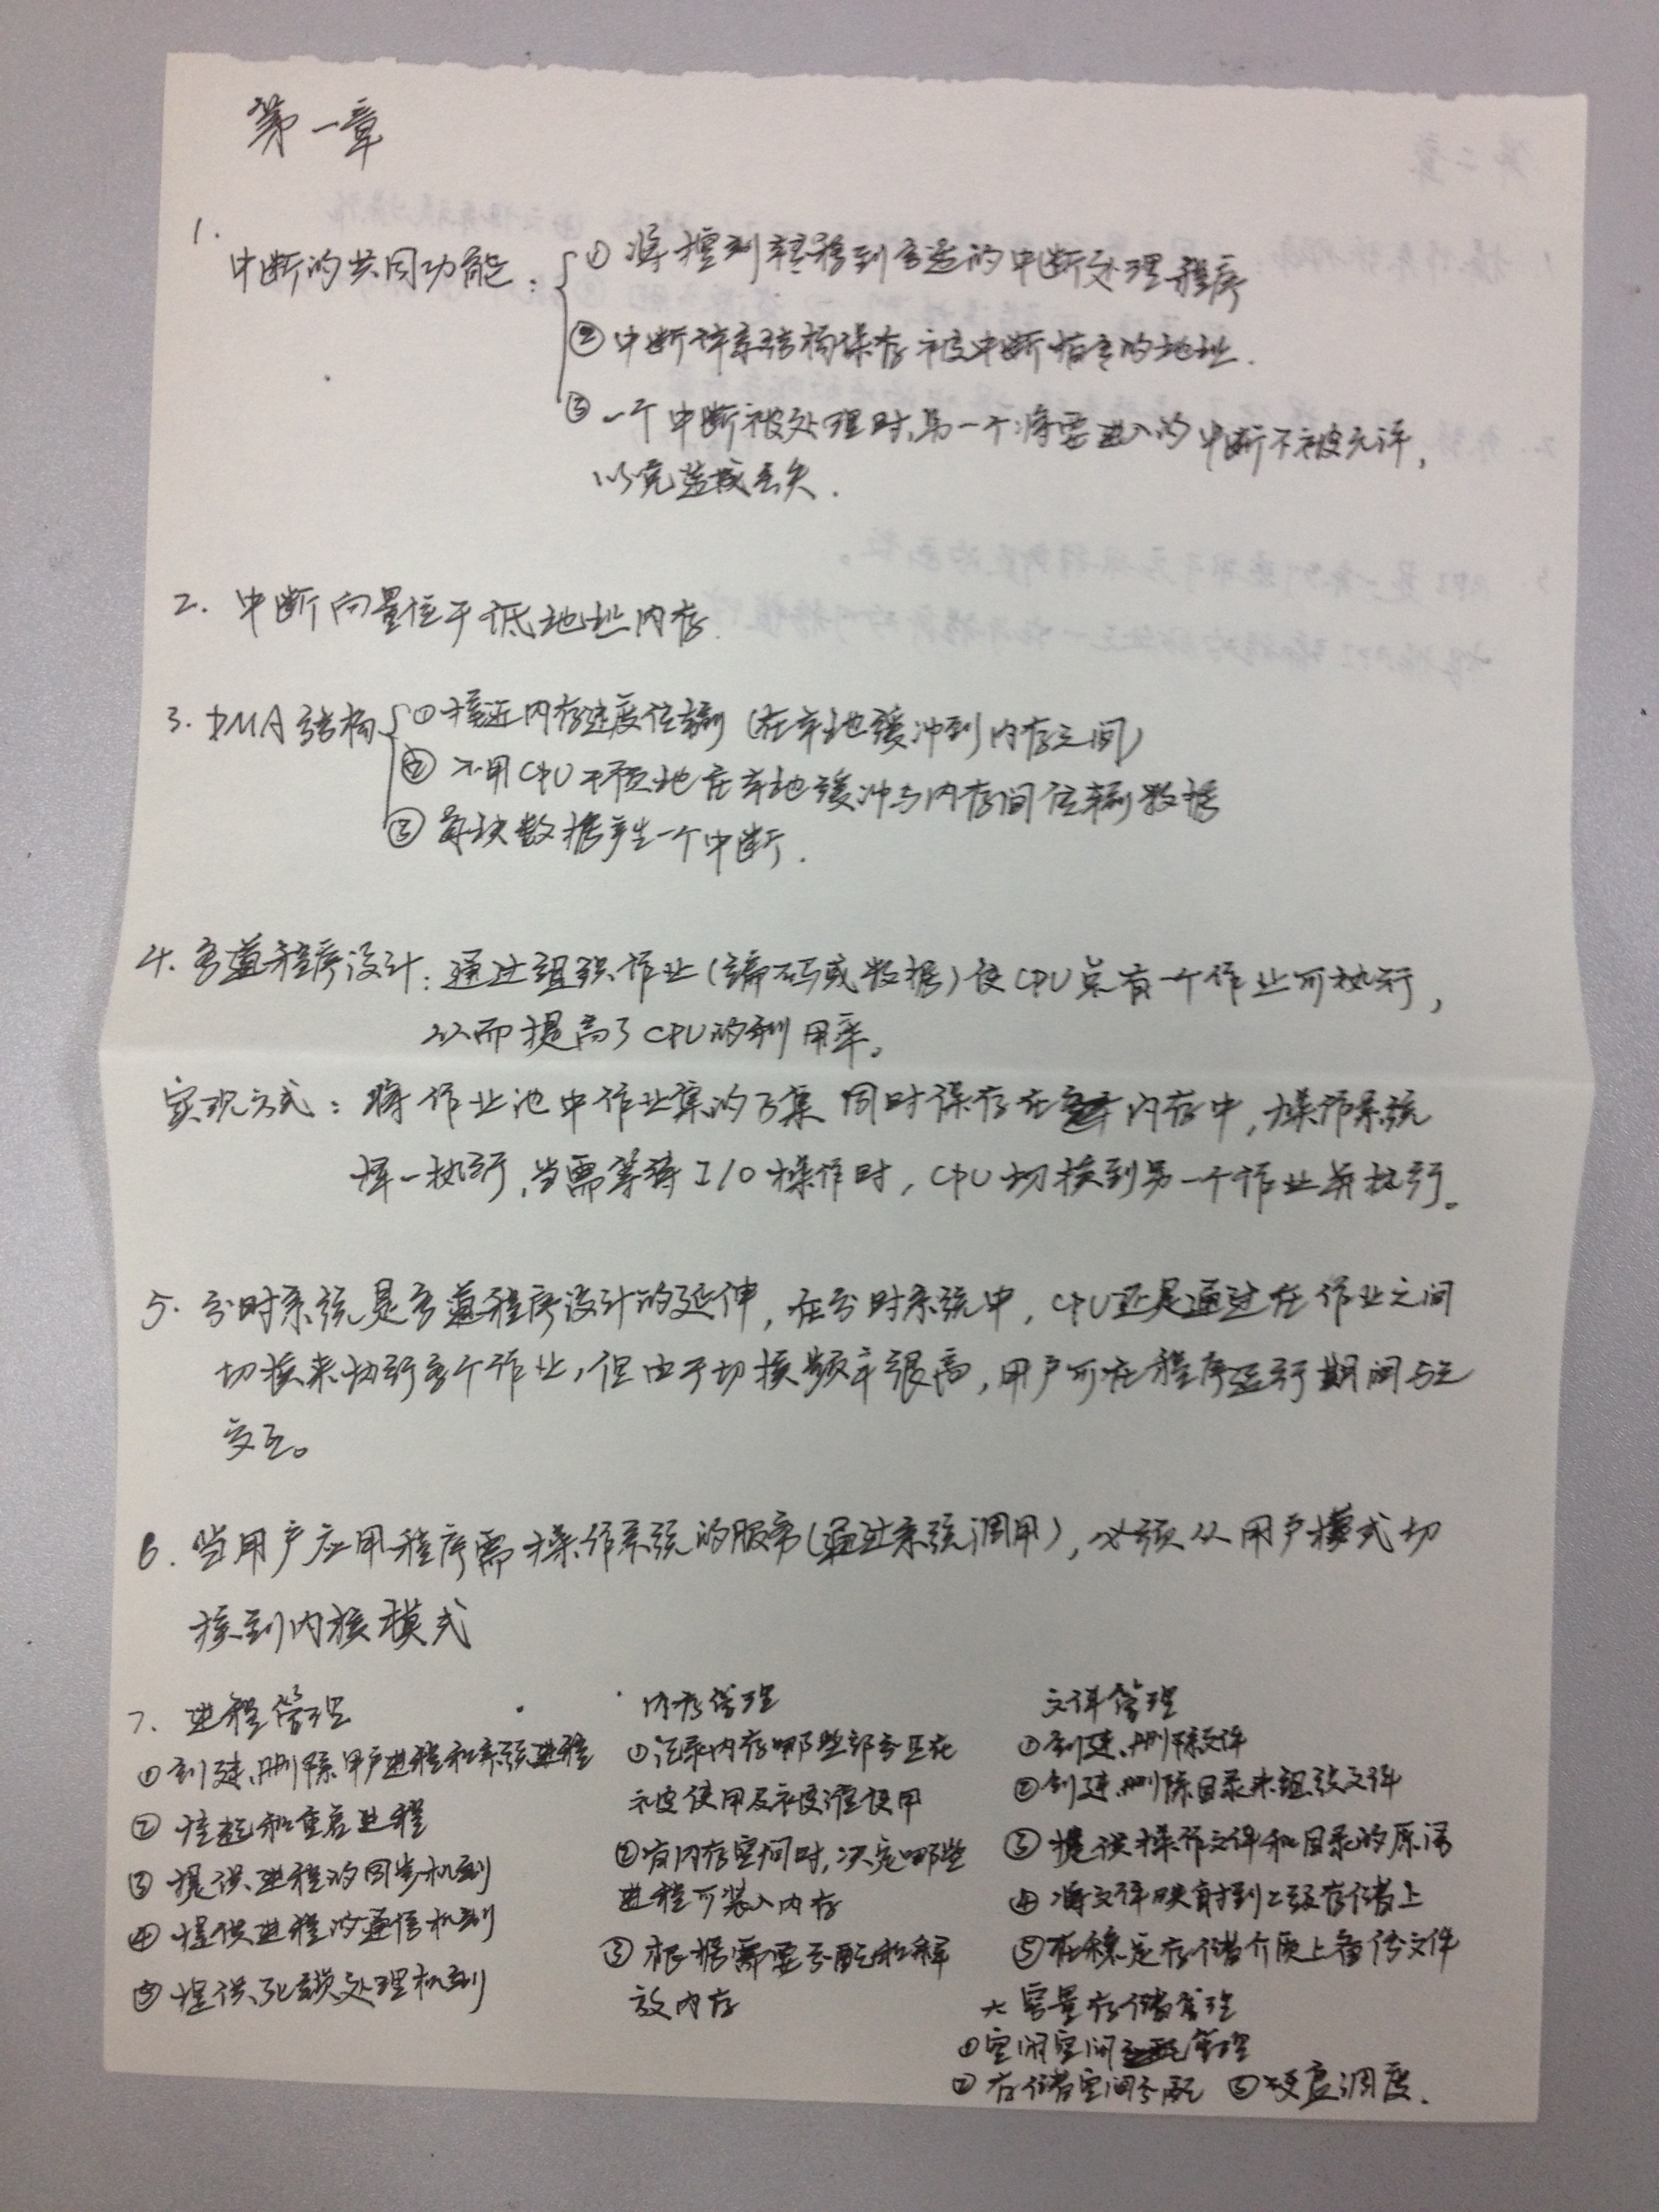 第一章
1.
中断的共同功能:
① 将控制转移到合适的中断处理程序
② 中断体系结构保存被中断指令的地址.
③ 一个中断被处理时,另一个将要进入的中断不被允许,
以免造成丢失.
2. 中断向量位于低地址内存.
3. DMA结构
① 接近内存速度传输 (在本地缓冲到内存之间)
② 不用CPU干预地在本地缓冲与内存间传输数据
③ 每块数据产生一个中断.
4. 多道程序设计: 通过组织作业(编码或数据)使CPU总有一个作业可执行,
从而提高了CPU的利用率。
实现方式: 将作业池中作业集的子集同时保存在内存中,操作系统
择一执行,当需等待I/O操作时, CPU切换到另一个作业并执行。
5. 分时系统是多道程序设计的延伸, 在分时系统中, CPU还是通过在作业之间
切换来执行多个作业, 但由于切换频率很高, 用户可在程序运行期间与之
交互。
6. 当用户应用程序需操作系统的服务(通过系统调用), 必须从用户模式切
换到内核模式
7. 进程管理
① 创建、删除用户进程和系统进程
② 挂起和重启进程
③ 提供进程的同步机制
④ 提供进程的通信机制
⑤ 提供死锁处理机制
内存管理
① 记录内存哪些部分正在
被使用及被谁使用
② 有内存空间时, 决定哪些
进程可装入内存
③ 根据需要分配和释
放内存
文件管理
① 创建、删除文件
② 创建、删除目录来组织文件
③ 提供操作文件和目录的原语
④ 将文件映射到二级存储上
⑤ 在稳定存储介质上备份文件
大容量存储管理
① 空闲空间管理
② 存储空间分配 ③ 硬盘调度.